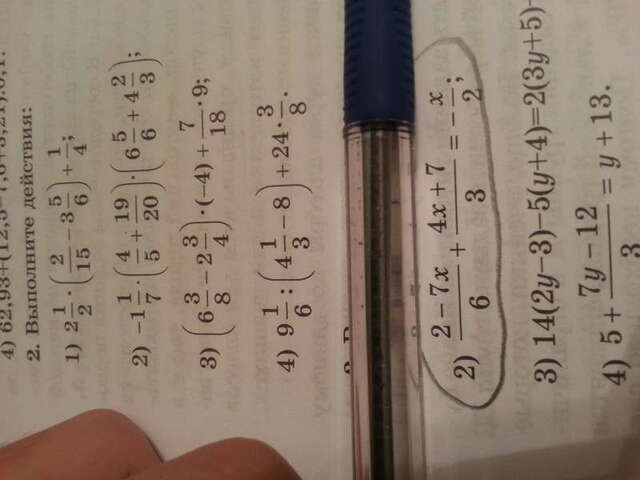 4) 62,93+(12,5-7,6+3,21):0,1.
2. Выполните действия:
1) 2 1/2 · (2/15 - 3 5/6) + 1/4;
2) -1 1/7 · (4/5 + 19/20) · (6 5/6 + 4 2/3);
3) (6 3/8 - 2 3/4) · (-4) + 7/18 · 9;
4) 9 1/6 : (4 1/3 - 8) + 24 · 3/8.
2) (2-7x)/6 + (4x+7)/3 = -x/2;
3) 14(2y-3)-5(y+4)=2(3y+5)-
4) 5 + (7y-12)/3 = y + 13.